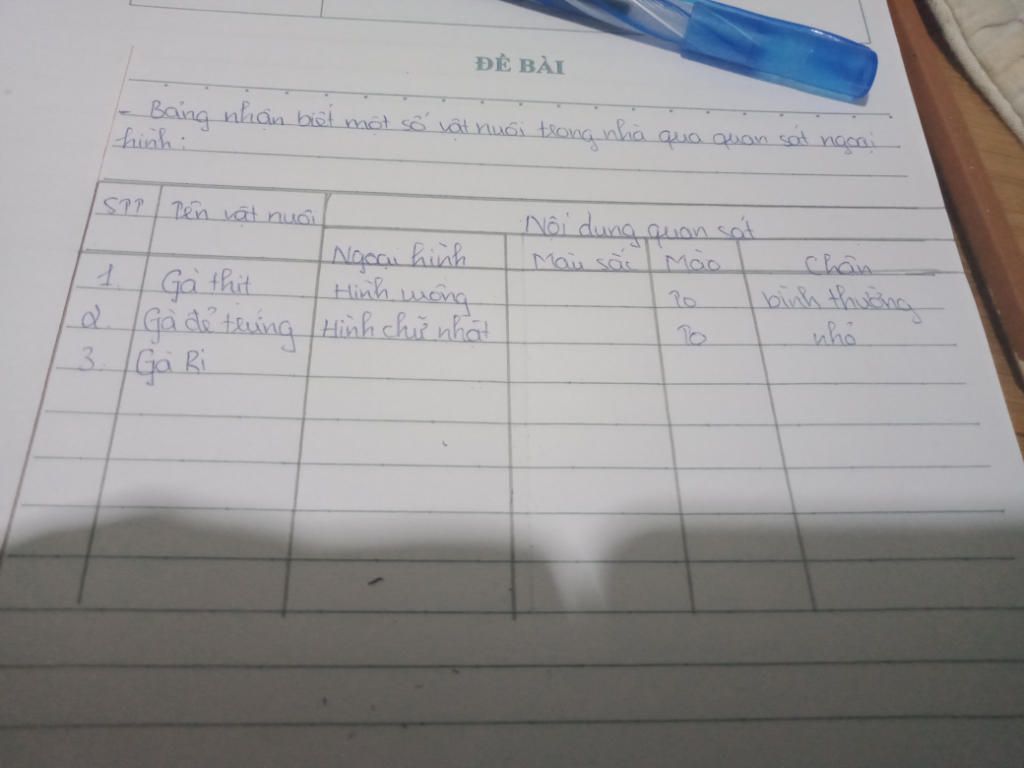 ĐỀ BÀI
- Bảng nhận biết một số vật nuôi trong nhà qua quan sát ngoại
hình:
STT Tên vật nuôi Nội dung quan sát
Ngoại hình Màu sắc Mào Chân
1. Gà thịt Hình vuông To bình thường
2. Gà đẻ trứng Hình chữ nhật To nhỏ
3. Gà Ri